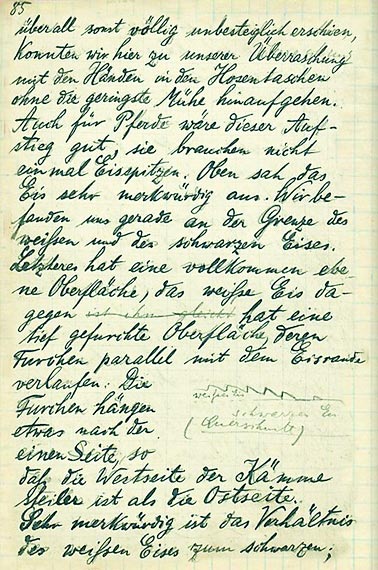 85
überall sonst völlig unbesteiglich erschien,
konnten wir hier zu unserer Überraschung
mit den Händen in den Hosentaschen
ohne die geringste Mühe hinaufgehen.
Auch für Pferde wäre dieser Auf-
stieg gut, sie brauchen nicht
einmal Eisspitzen. Oben sah das
Eis sehr merkwürdig aus. Wir be-
fanden uns gerade an der Grenze des
weißen und des schwarzen Eises.
Letzteres hat eine vollkommen ebe-
ne Oberfläche, das weiße Eis da-
gegen hat eine
tief gefurchte Oberfläche, deren
Furchen parallel mit dem Eisrande
verlaufen. Die
weißes Eis
schwarzes Eis
(Querschnitt)
Furchen hängen
etwas nach der
einen Seite, so
daß die Westseite der Kämme
steiler ist als die Ostseite.
Sehr merkwürdig ist das Verhältnis
des weißen Eises zum schwarzen;